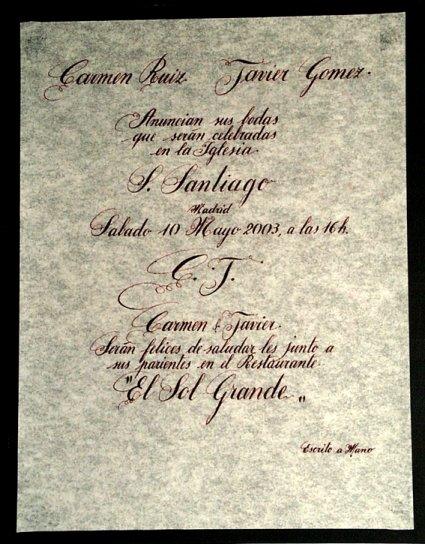 Carmen Ruiz Javier Gomez.
Anuncian sus bodas
que serán celebradas
en la Iglesia.
S. Santiago
Madrid
Sabado 10 Mayo 2003, a las 16h.
C. J.
Carmen & Javier.
Serán felices de saludar les junto a
sus parientes en el Restaurante.
"El Sol Grande„
Escrito a Mano